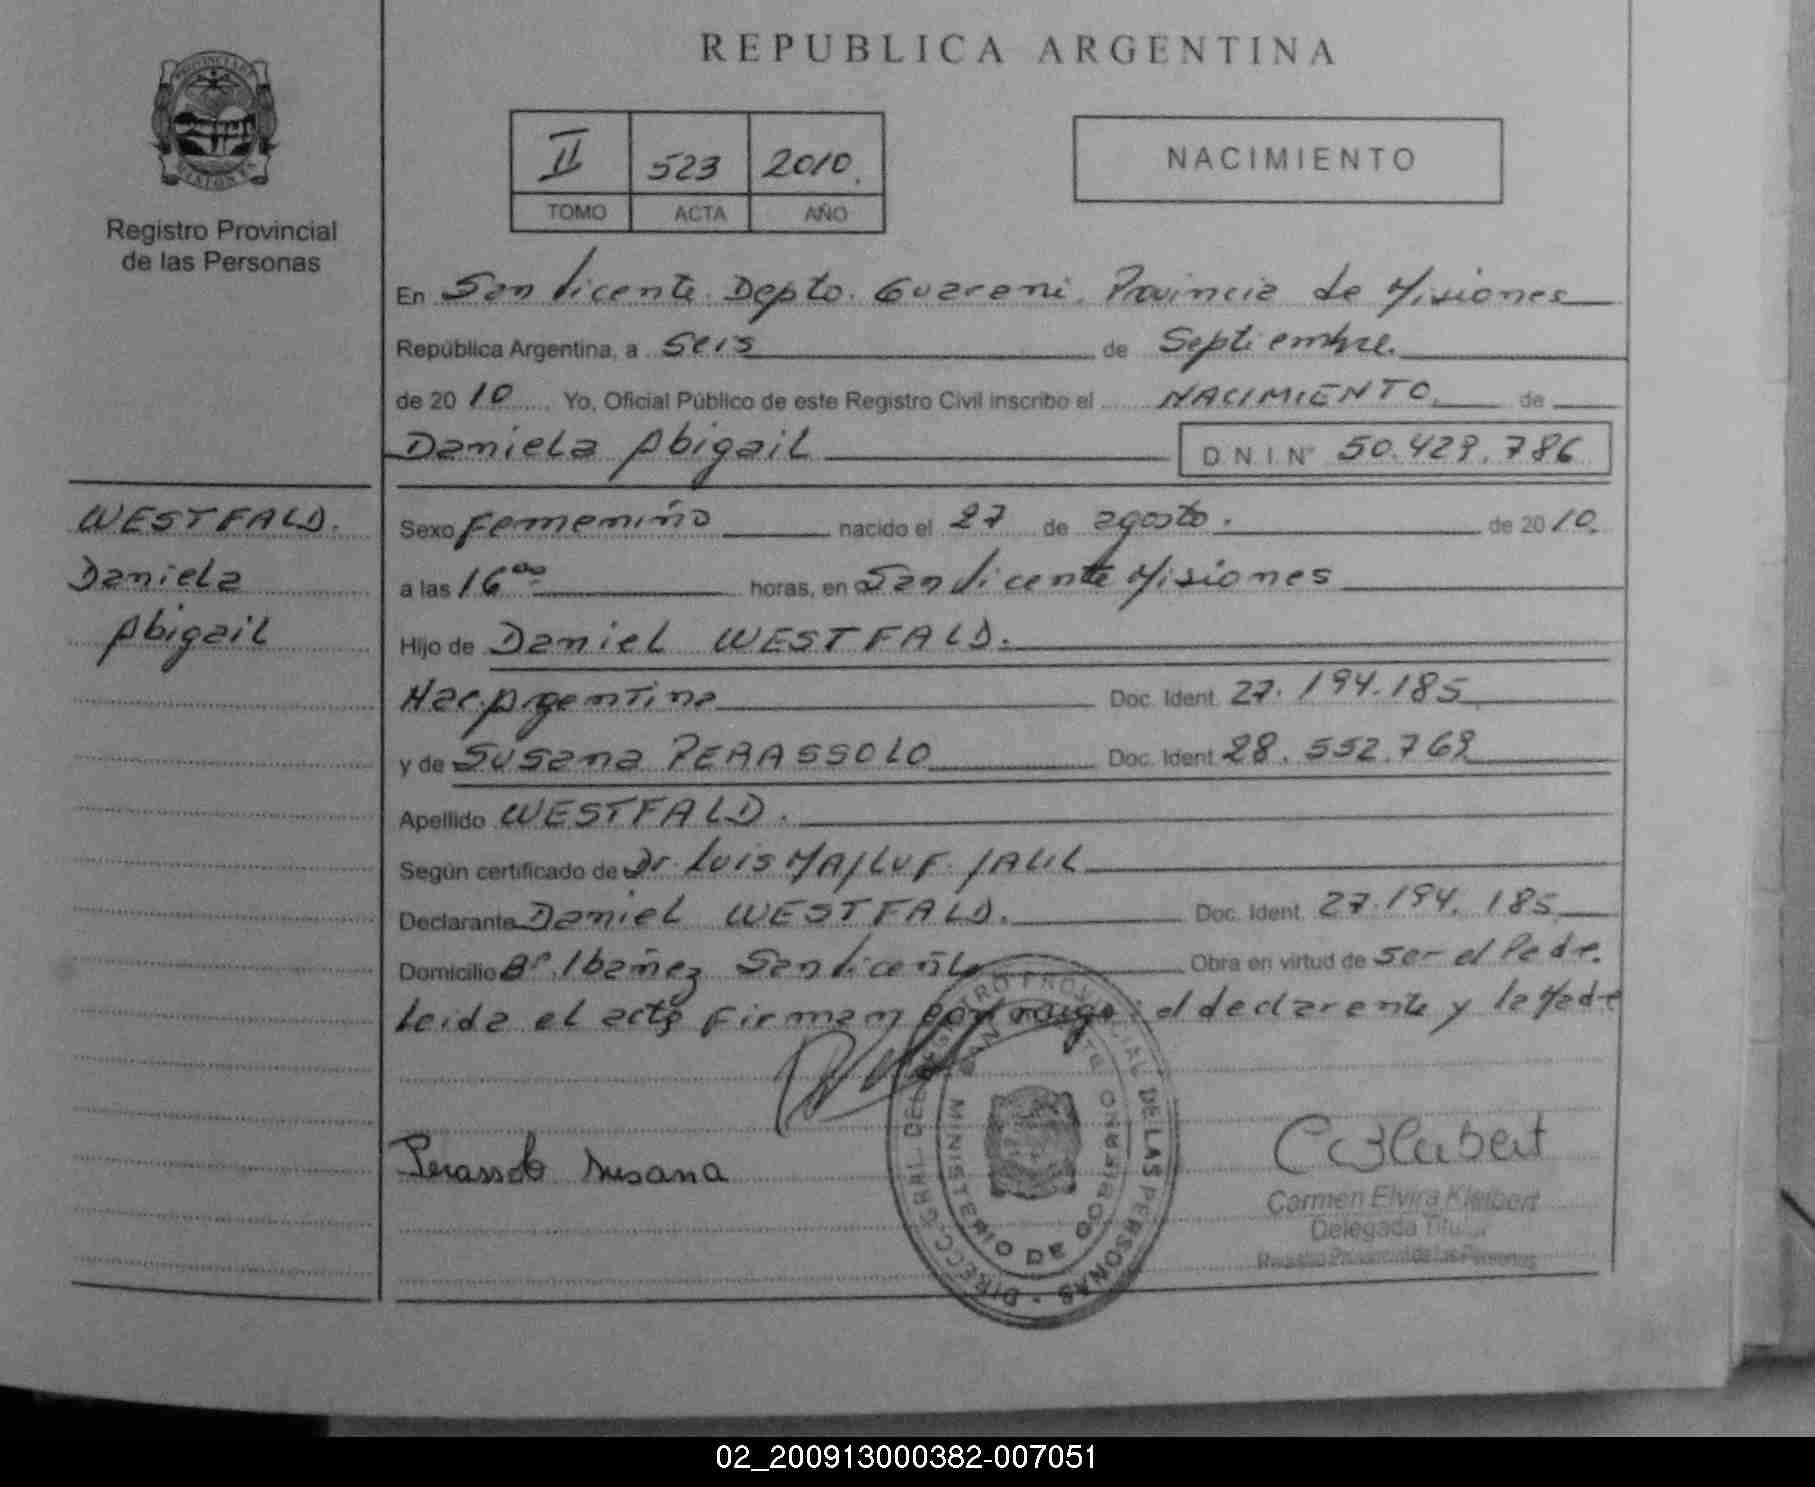 REPUBLICA ARGENTINA
Registro Provincial
de las Personas
II 523 2010.
TOMO ACTA AÑO
NACIMIENTO
En San Vicente Depto. Guarani. Provincia de Misiones
República Argentina, a seis de Septiembre.
de 2010. Yo, Oficial Público de este Registro Civil inscribo el NACIMIENTO. de
Daniela Abigail D.N.I. N° 50.429.786
WESTFALD.
Daniela
Abigail
Sexo Femenino nacido el 27 de agosto. de 2010.
a las 16 00 horas, en San Vicente Misiones
Hijo de Daniel WESTFALD.
Nac. Argentina Doc. Ident. 27.194.185
y de Susana PERASSOLO Doc. Ident. 28.552.769
Apellido WESTFALD.
Según certificado de Dr. Luis MAJLUF JALIL
Declarante Daniel WESTFALD. Doc. Ident. 27.194.185
Domicilio B°. Ibañez San Vicente Obra en virtud de ser el Padre.
Leida el acta firman conmigo: el declarante y la Madre
Perassolo Susana
DIRECC. GRAL. DEL REGISTRO PROVINCIAL DE LAS PERSONAS
MINISTERIO DE GOBIERNO
Carmen Elvira Kleibert
Delegada Titular
Registro Provincial de las Personas
02_200913000382-007051